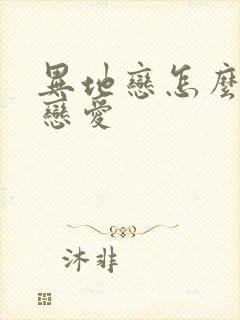 異地戀怎麼
戀愛
沐非